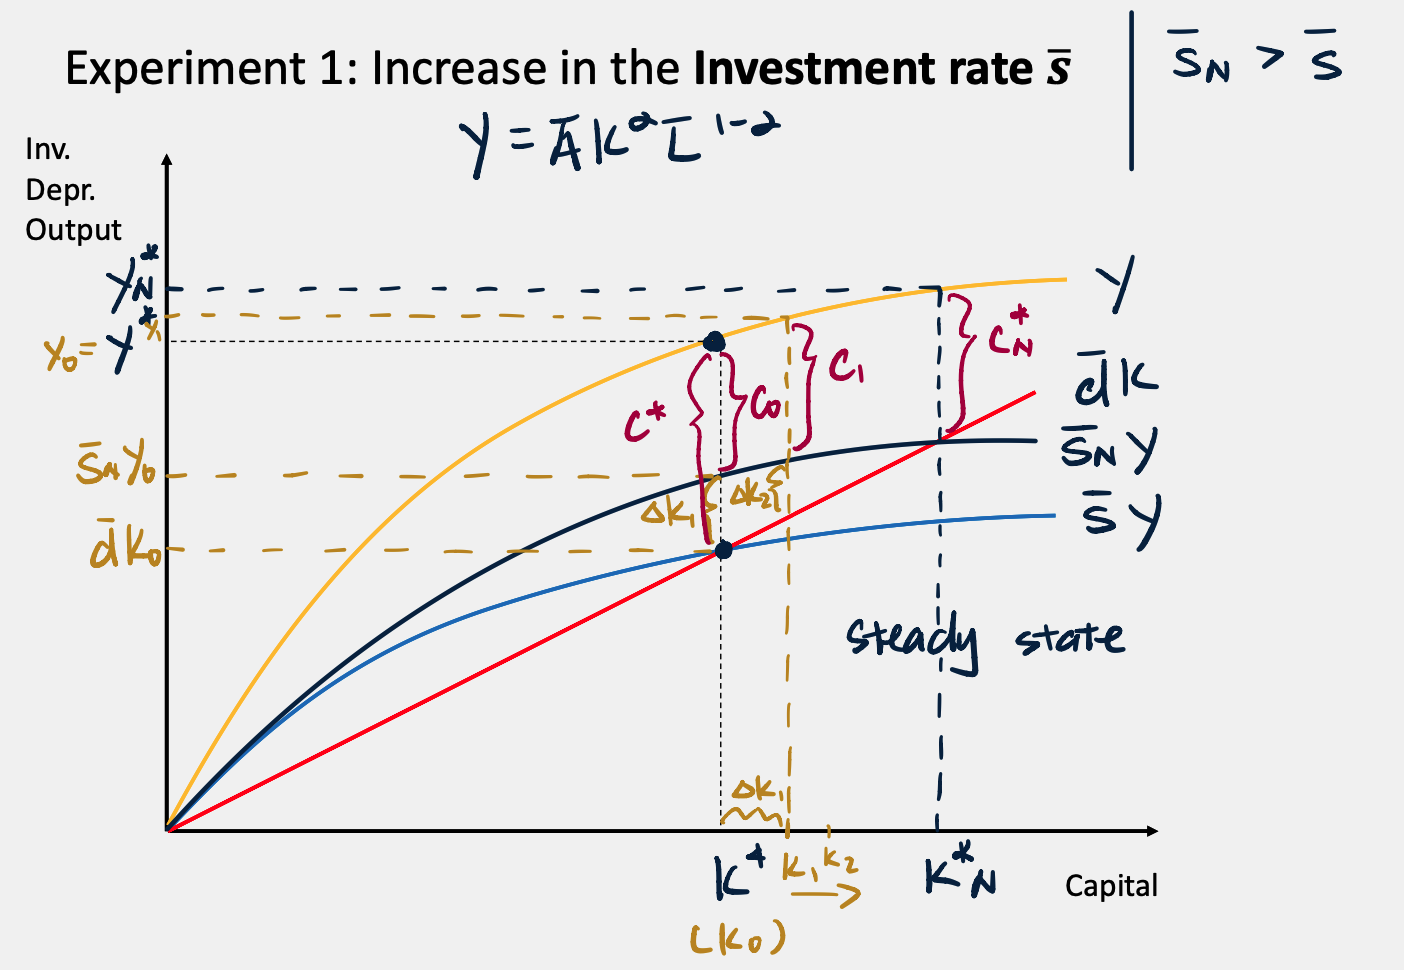 Experiment 1: Increase in the Investment rate s̄
s̄_N > s̄
Y = Ā K^α L̄^(1-α)
Inv.
Depr.
Output
Y_N*
Y_1
Y_0 = Y*
Y
C_N*
C_1
C_0
C*
d̄K
s̄_N Y
s̄_N Y_0
s̄ Y
ΔK_1
ΔK_2
d̄K_0
steady state
ΔK_1
K*
K_1
K_2
K*_N
Capital
(K_0)